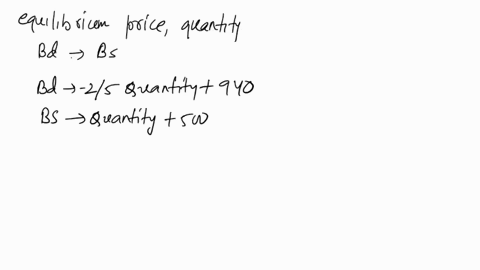 equilibrium price, quantity
Bd → Bs
Bd → -2/5 Quantity + 940
BS → Quantity + 500